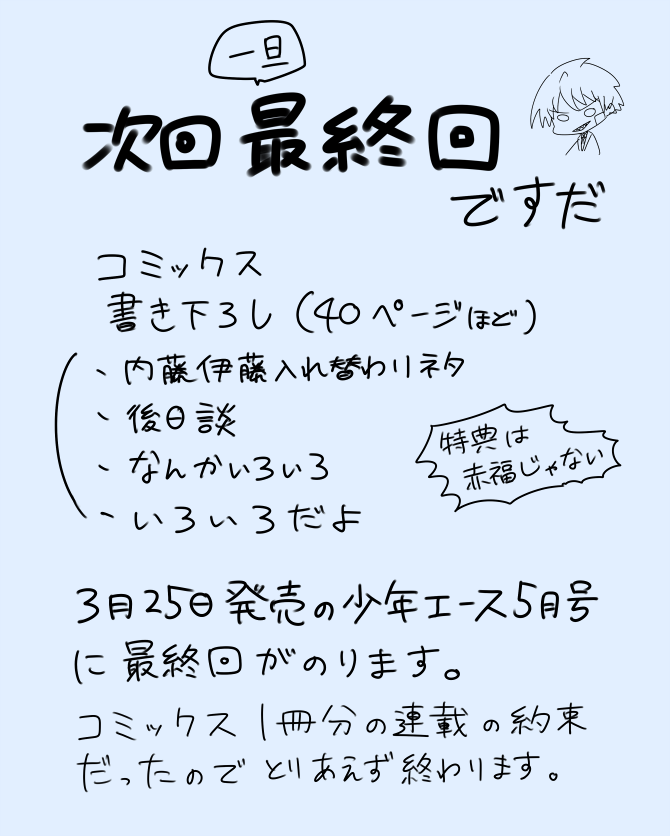 一旦
次回最終回
ですだ
コミックス
書き下ろし(40ページほど)
、内藤伊藤入れ替わりネタ
、後日談
、なんかいろいろ
、いろいろだよ
特典は
赤福じゃない
3月25日発売の少年エース5月号
に最終回がのります。
コミックス1冊分の連載の約束
だったのでとりあえず終わります。